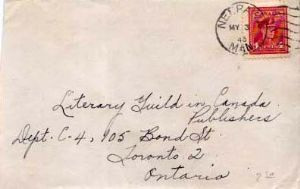 NEEPAWA
MY 3
45
MAN
Literary Guild in Canada
Publishers
Dept. C-4, 105 Bond St
Toronto 2
Ontario